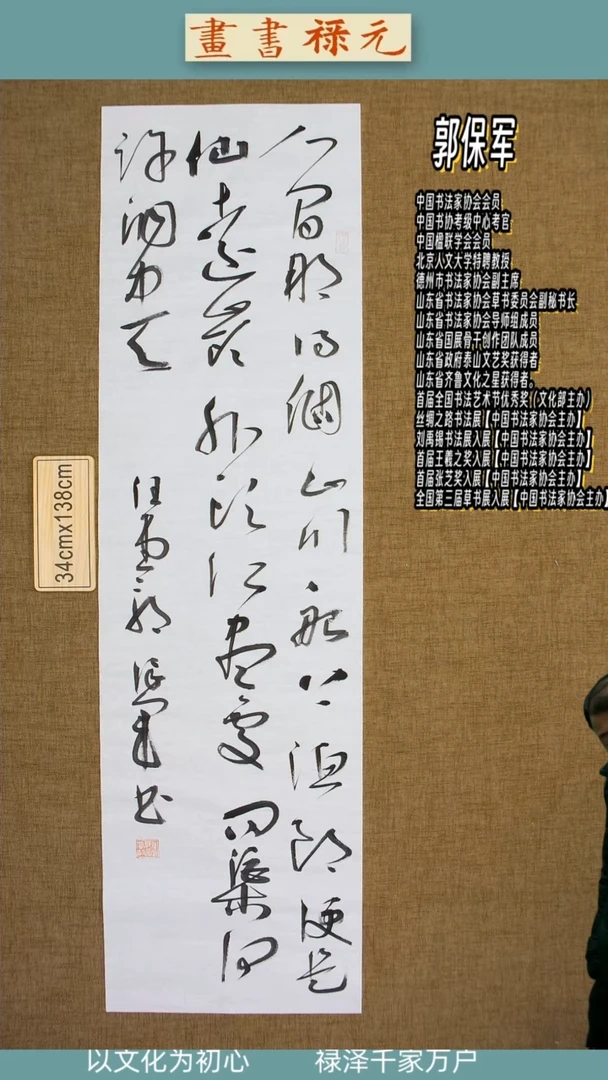 元禄書畫
郭保军
中国书法家协会会员
中国书协考级中心考官
中国楹联学会会员
北京人文大学特聘教授
德州市书法家协会副主席
山东省书法家协会草书委员会副秘书长
山东省书法家协会导师组成员
山东省国展骨干创作团队成员
山东省政府泰山文艺奖获得者
山东省齐鲁文化之星获得者。
首届全国书法艺术节优秀奖（文化部主办）
丝绸之路书法展【中国书法家协会主办】
刘禹锡书法展入展【中国书法家协会主办】
首届王羲之奖入展【中国书法家协会主办】
首届张芝奖入展【中国书法家协会主办】
全国第三届草书展入展【中国书法家协会主办】
人間那得個山川船上漁郎便是
仙遠外頭江盡處問渠何
許洞中天
書
34cmx138cm
以文化为初心 禄泽千家万户